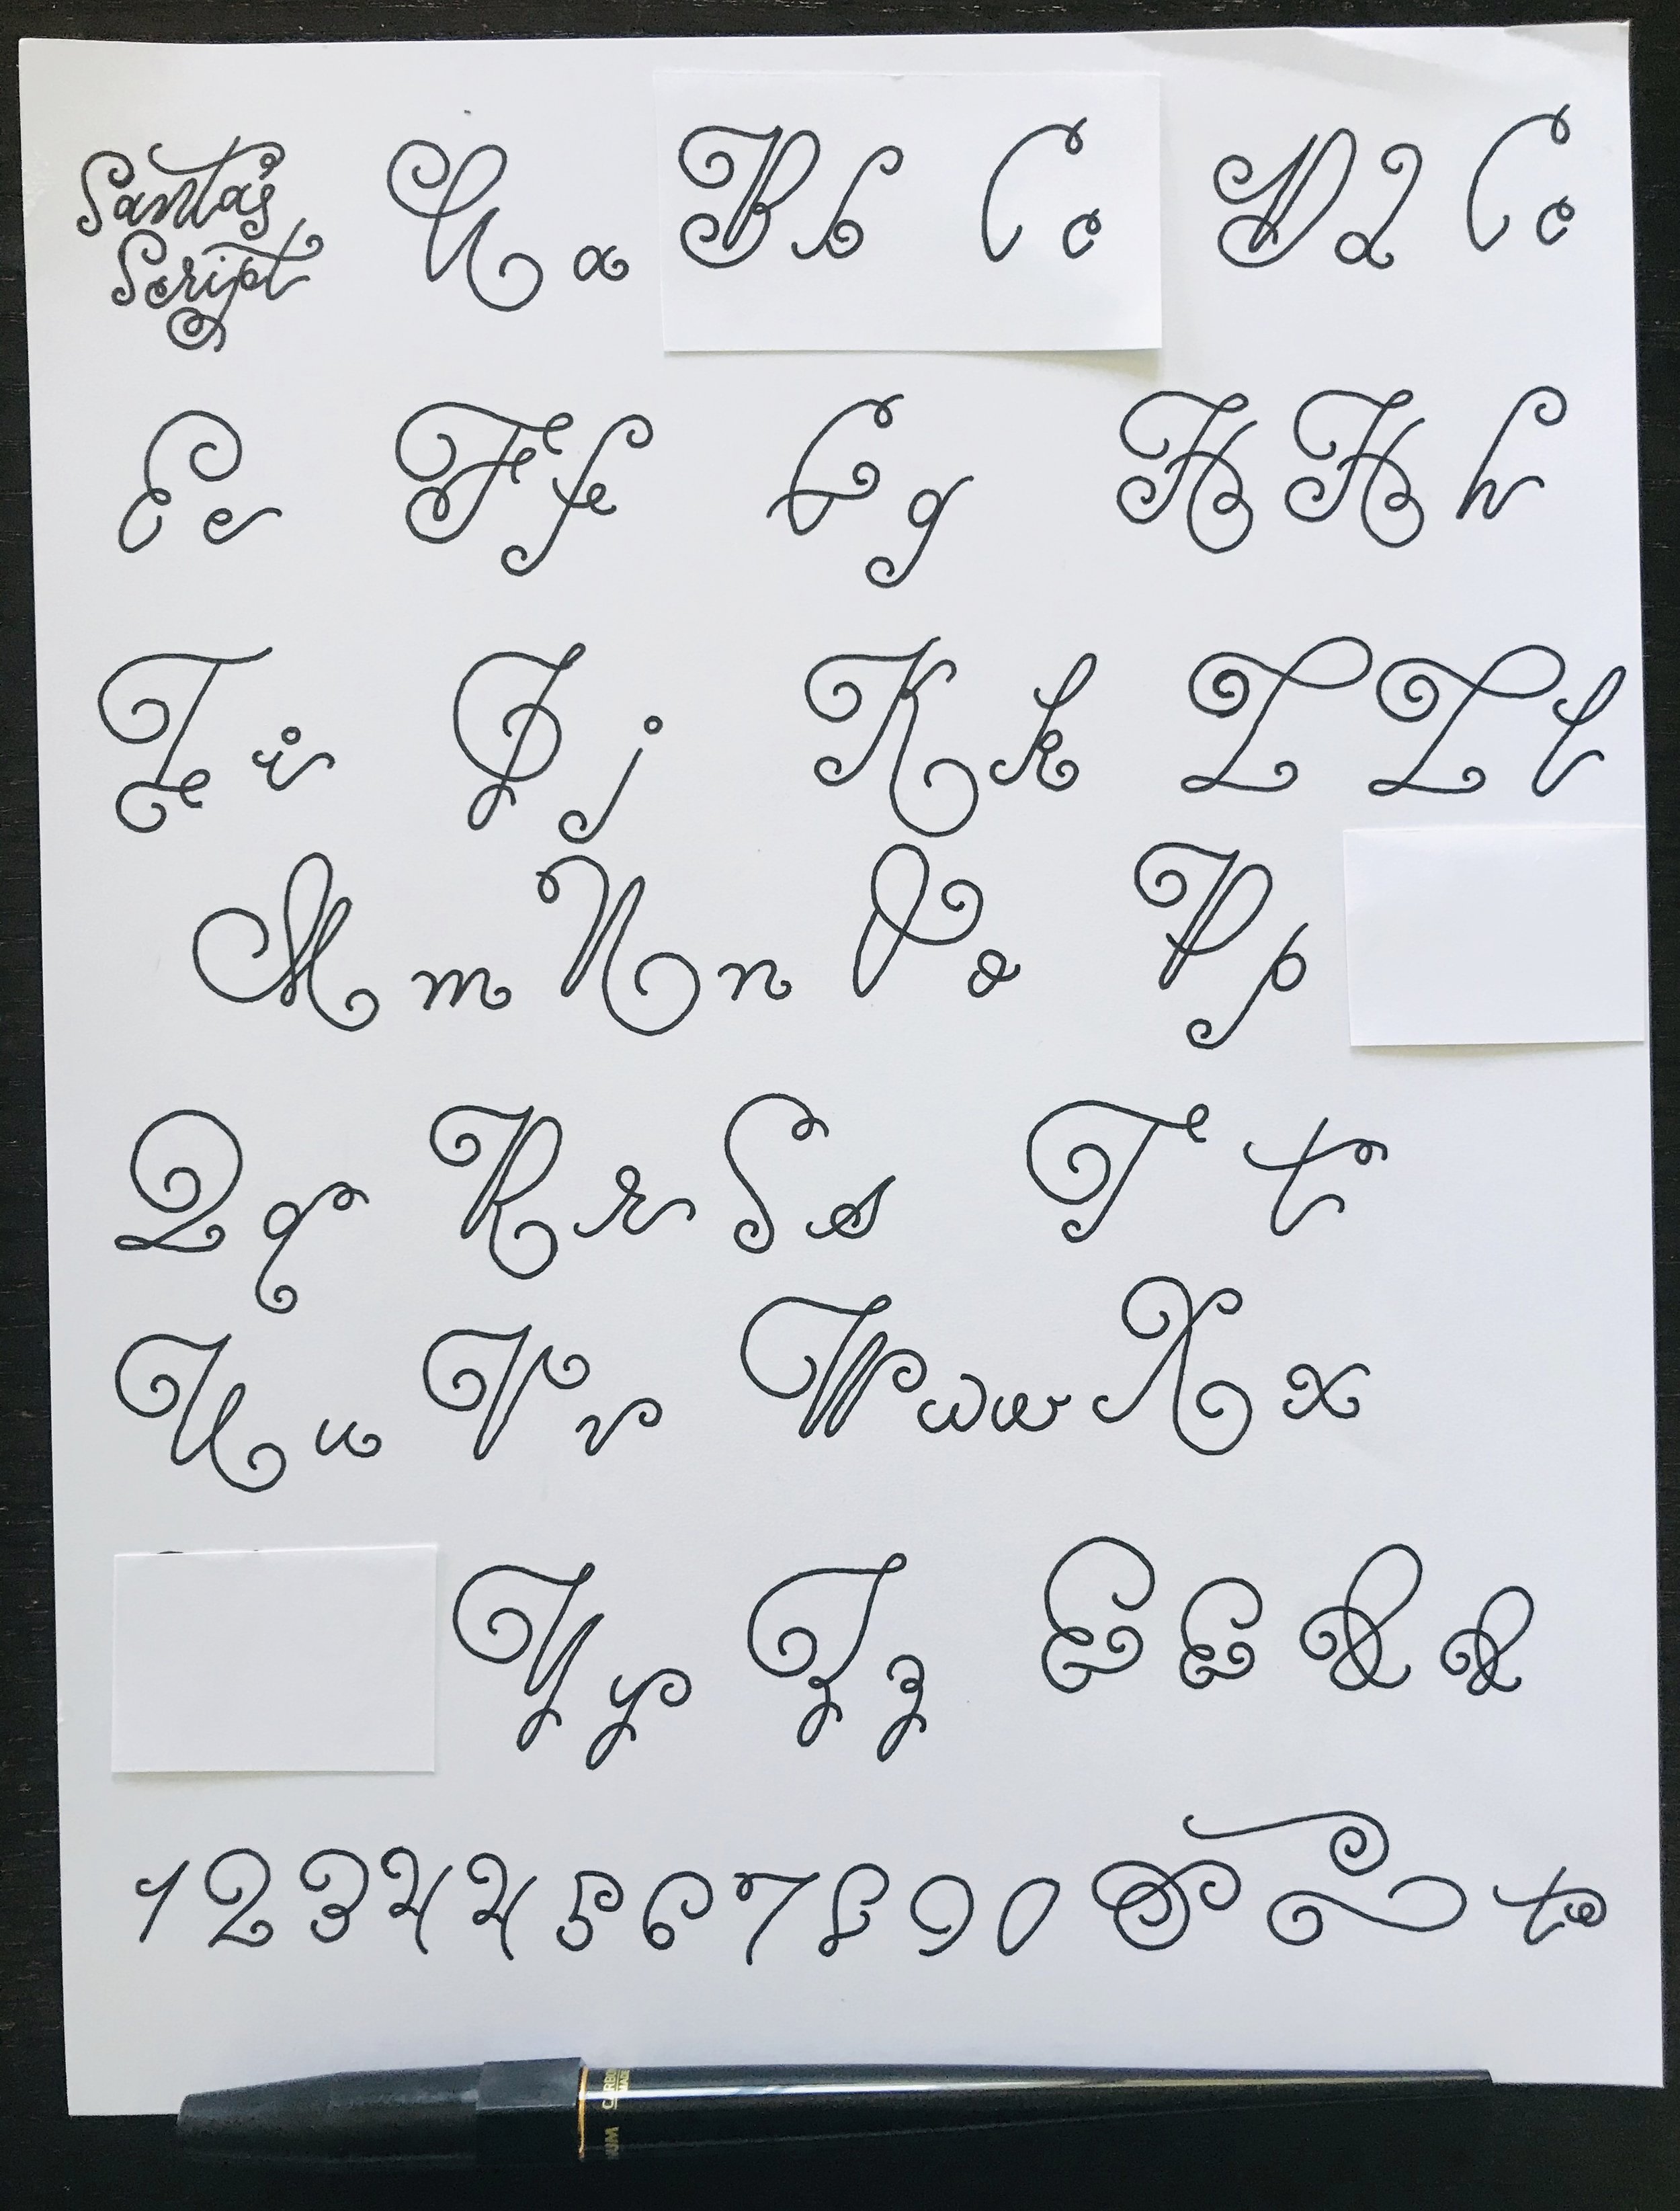 Santa's Script
A a B b C c D d C c
E e F f G g H H h
I i J j K k L L l
M m N n O o P p
Q q R r S s T t
U u V v W w w X x
Y y Z z E E & &
1 2 3 4 4 5 6 7 8 9 0 to